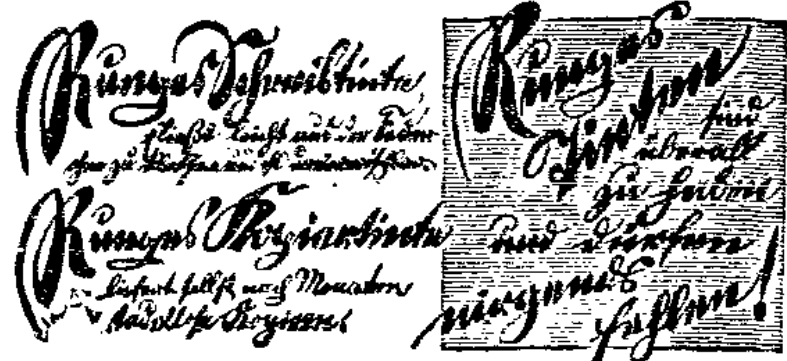 Runges Schreibtinte,
fließt leicht aus der Feder
ohne zu klecksen und ist unverwischbar.
Runges Kopiertinte
liefert selbst nach Monaten
tadellose Kopieen!
Runges
Tinten
sind
überall
zu haben
und dürfen
nirgends
fehlen!